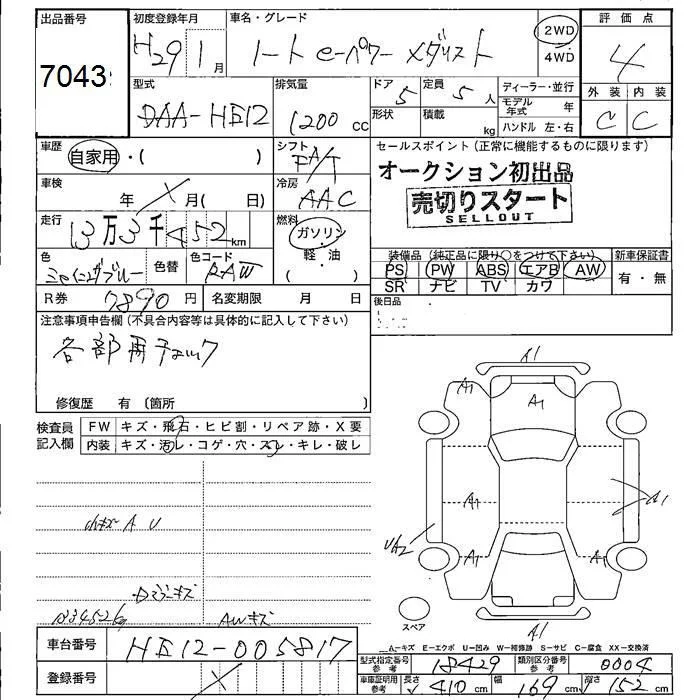 出品番号 初度登録年月 車名・グレード 2WD 4WD 評価点
7043 H29 1月 ノート e-パワー メダリスト 4
型式 排気量 ドア 定員 ディーラー・並行 外装 内装
DAA-HE12 1200cc 5 5人 モデル年式 年 C C
形状 積載 kg ハンドル 左・右
車歴 シフト セールスポイント(正常に機能するものに限ります)
自家用・( ) FA/T オークション初出品
車検 冷房 売切りスタート
年 X 月( 日) AAC SELLOUT
走行 燃料
13万3千452km ガソリン
軽・油 装備品(純正品に限り○をつけて下さい) 新車保証書
色 色替 色コード PS PW ABS エアB AW 有・無
ブルー RAW SR ナビ TV カワ
R券 7890円 名変期限 月 日 後日品
注意事項申告欄(不具合内容等は具体的に記入して下さい)
各部再チェック
修復歴 有 (箇所 )
検査員記入欄 FW キズ・飛石・ヒビ割・リペア跡・X要
内装 キズ・汚レ・コゲ・穴・スレ・キレ・破レ
A1
A1 A1 A1
A1 A1
A1
UA2
A1 A1
A1
スペア
A U
AWキズ
A=キズ E=エクボ U=凹み W=補修跡 S=サビ C=腐食 XX=交換済
車台番号 HE12-005817
型式指定番号 参考 18429 類別区分番号 参考 0004
登録番号 X
車庫証明用 参考 長さ 410cm 幅 169cm 高さ 152cm